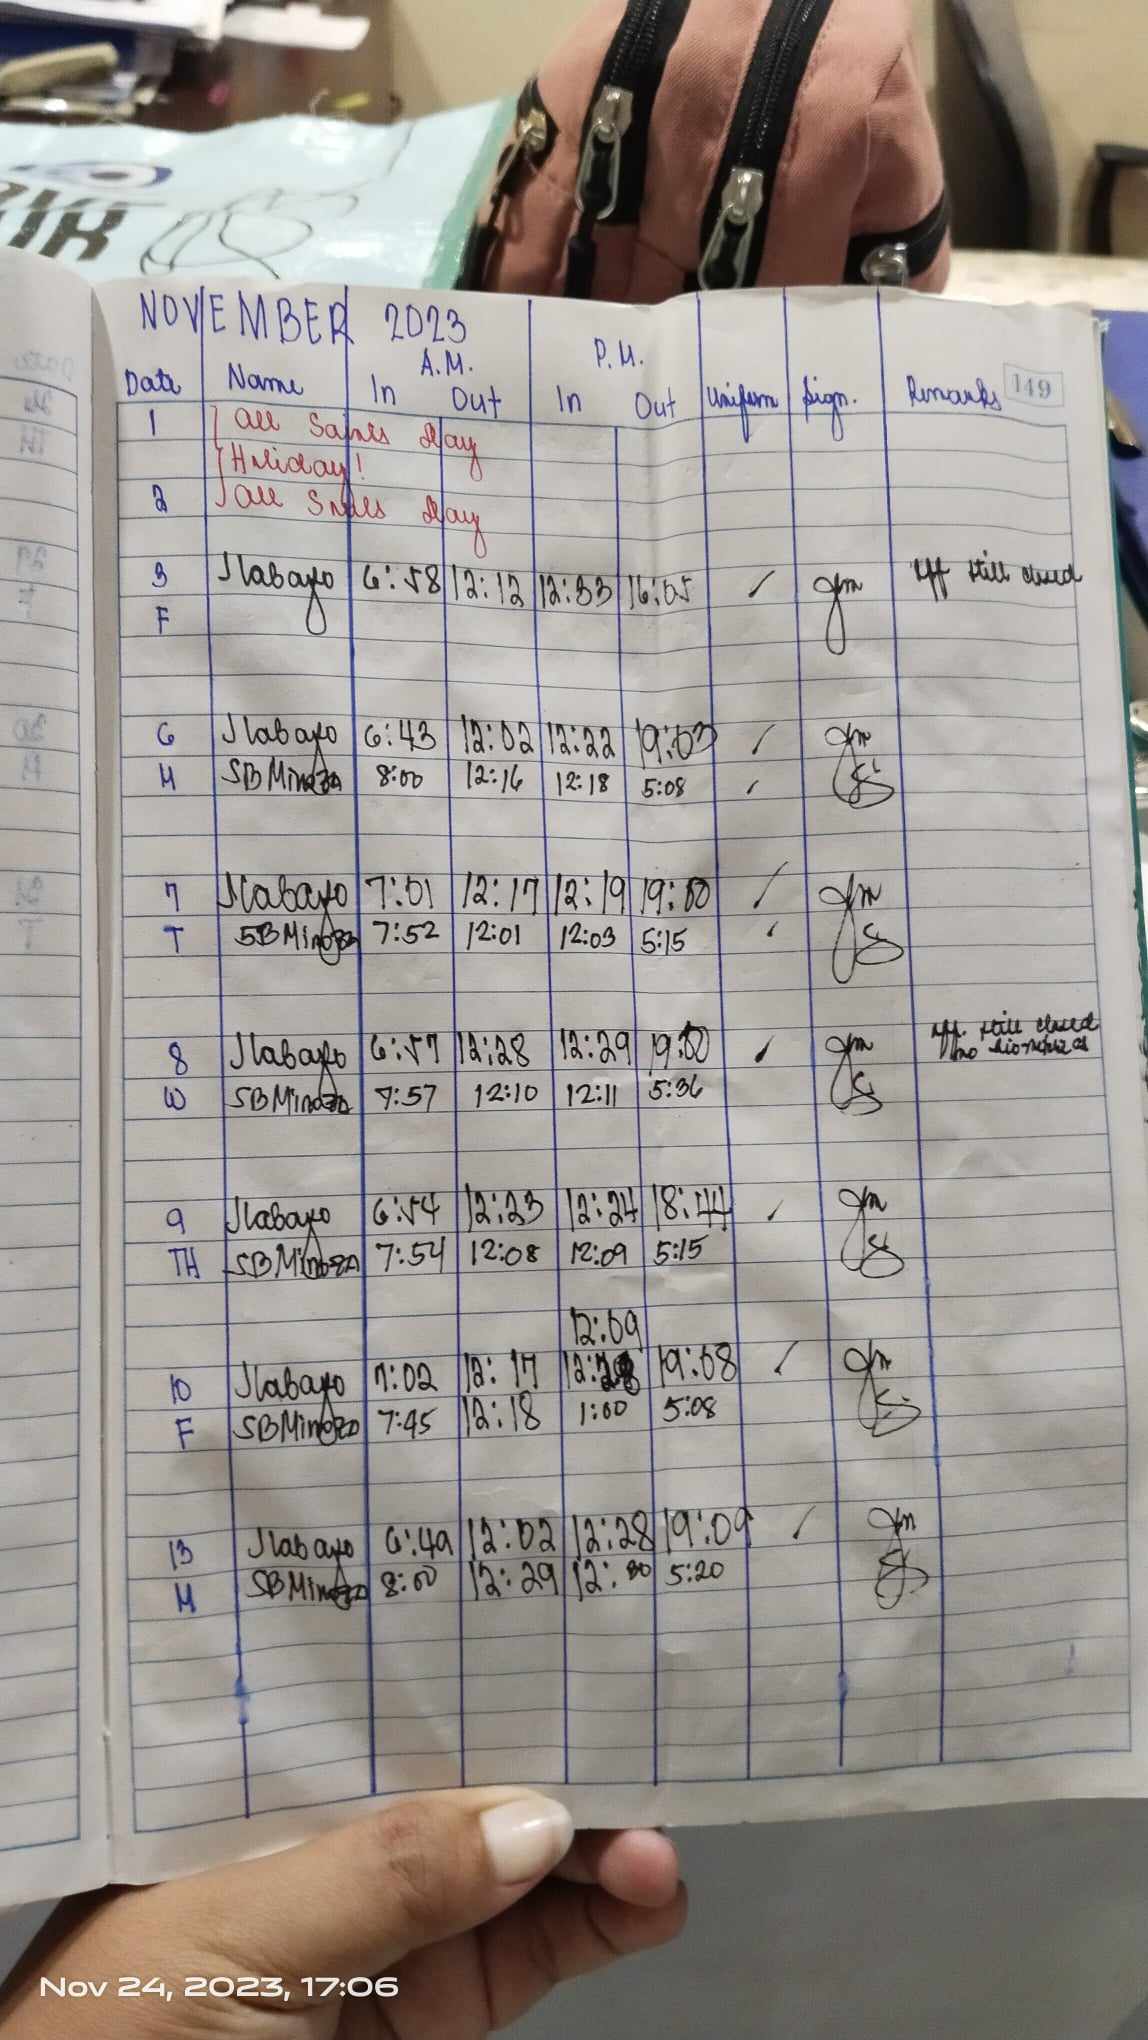 NOVEMBER 2023
A.M. P.M.
Date Name In Out In Out Uniform Sign. Remarks 149
1 All Saints Day
Holiday!
2 All Souls Day
3 Jlabayo 6:58 12:12 12:33 16:05 still closed
F
6 Jlabayo 6:43 12:02 12:22 19:03
M SBMinoza 8:00 12:16 12:18 5:08
7 Jlabayo 7:01 12:17 12:19 19:00
T SBMinoza 7:52 12:01 12:03 5:15
still closed
8 Jlabayo 6:57 12:28 12:29 19:00 no
W SBMinoza 7:57 12:10 12:11 5:36
9 Jlabayo 6:54 12:23 12:24 18:44
TH SBMinoza 7:54 12:08 12:09 5:15
12:09
10 Jlabayo 7:02 12:17 19:08
F SBMinoza 7:45 12:18 1:00 5:08
13 Jlabayo 6:49 12:02 12:28 19:09
M SBMinoza 8:00 12:29 12:30 5:20
Nov 24, 2023, 17:06